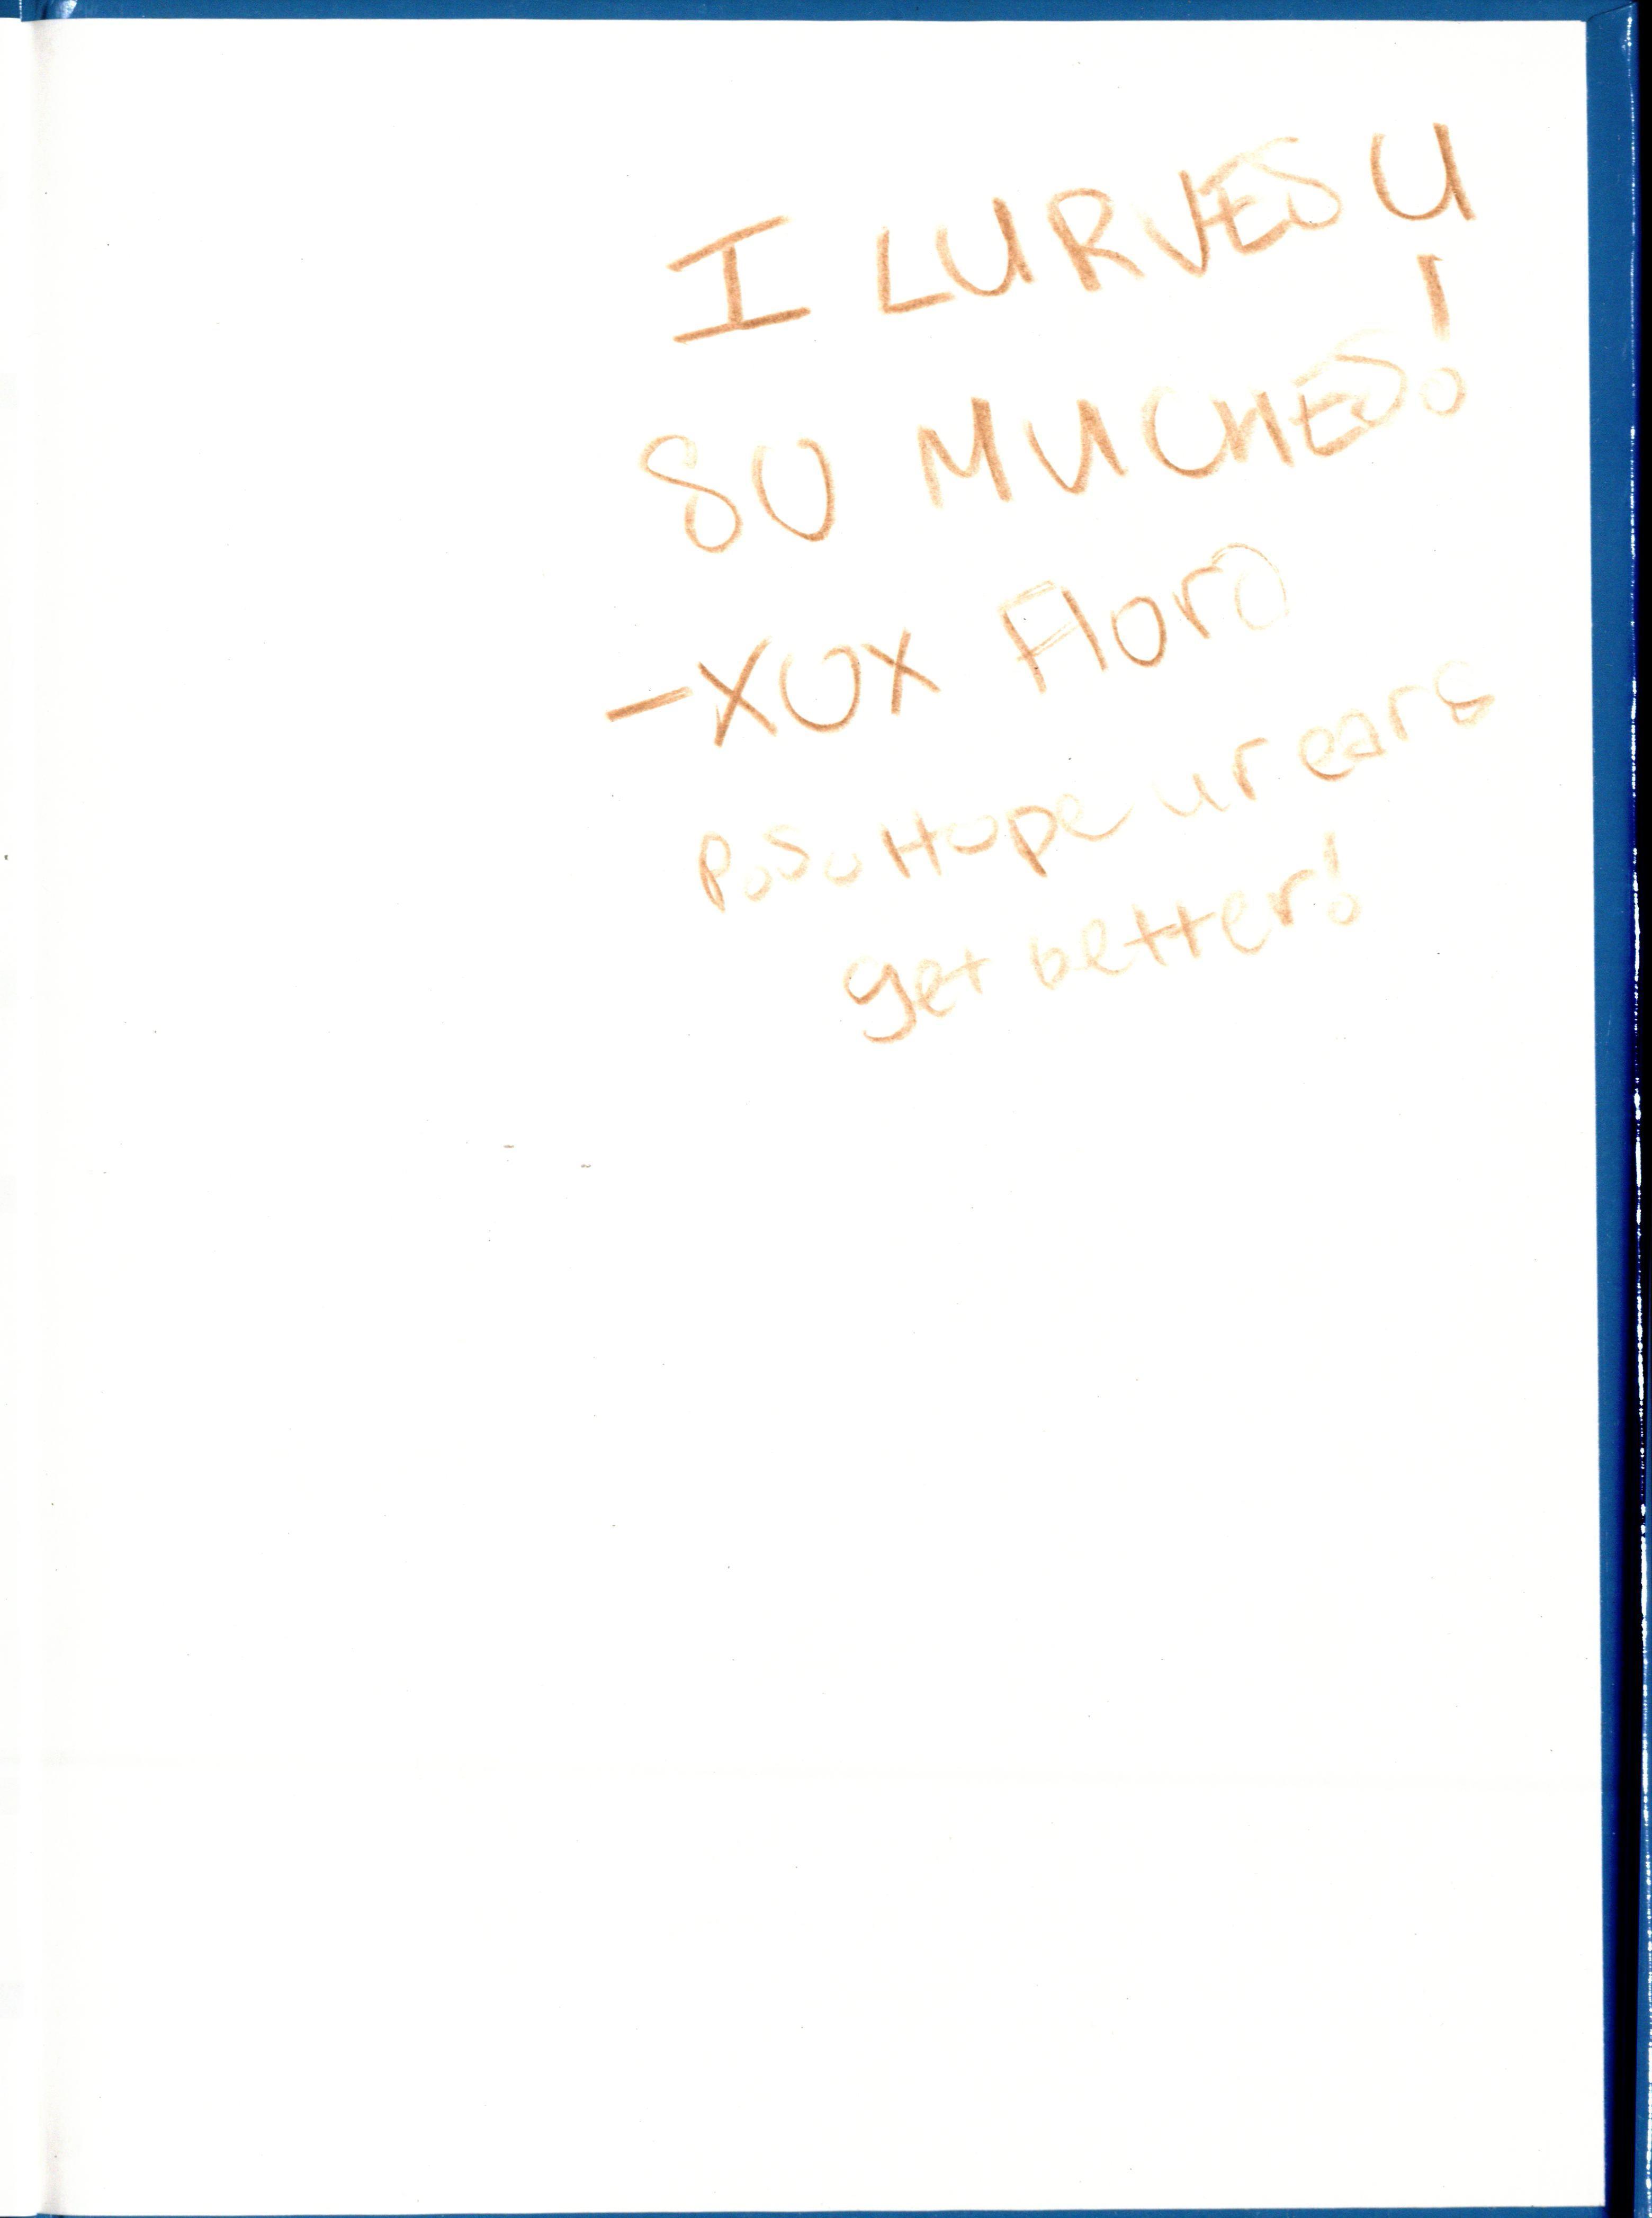 I LURVES U
SO MUCHES!
-XOX Flora
P.S. Hope ur ears
get better!